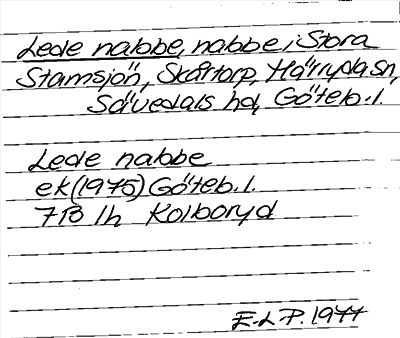 Lede nabbe, nabbe i Stora
Stamsjön, Skårtorp, Härryda sn,
Sävedals hd, Göteb. l.
Lede nabbe
ek (1975) Göteb. l.
7B 1h Kolboryd
E.L-P. 1977